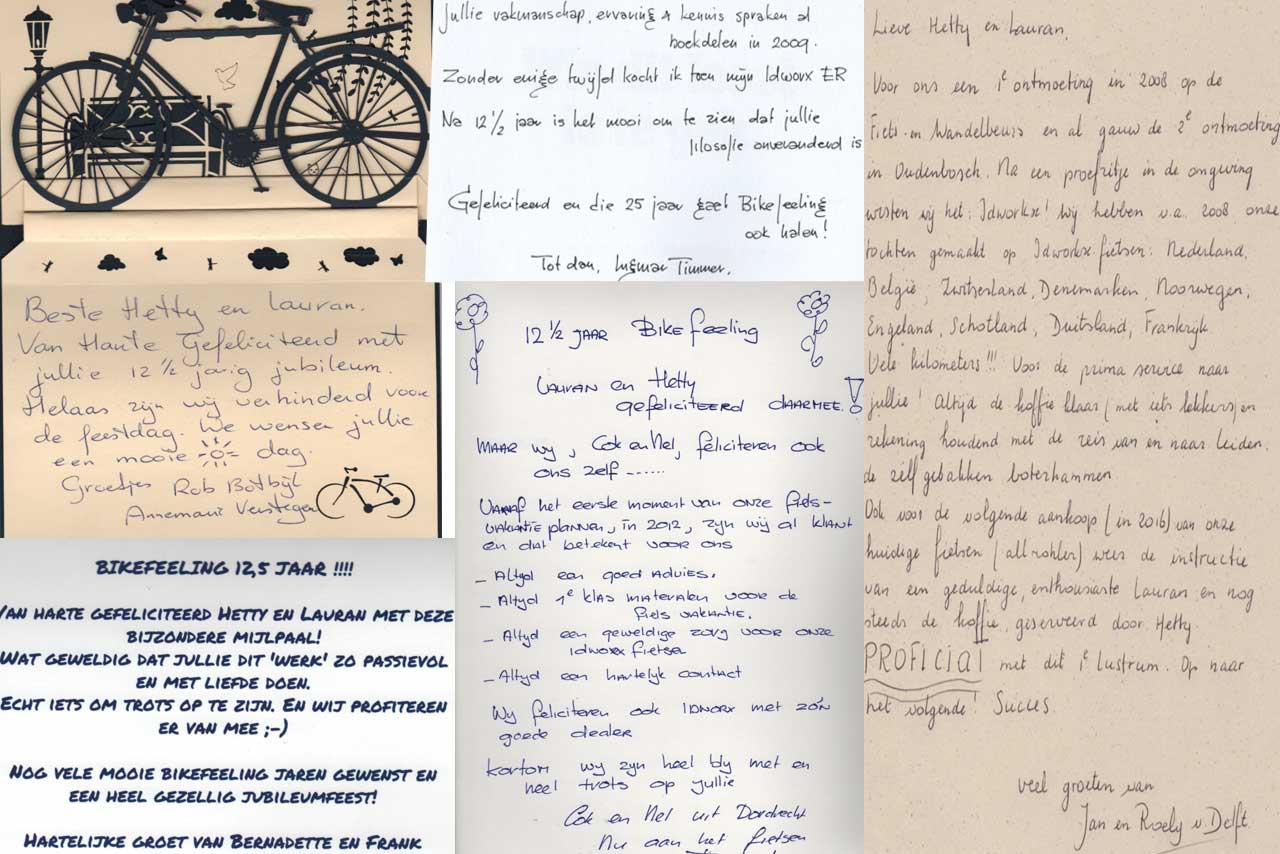 jullie vakmanschap, ervaring & kennis spraken al
boekdelen in 2009.
Zonder enige twijfel kocht ik toen mijn Idworx ER
Na 12 1/2 jaar is het mooi om te zien dat jullie
filosofie onveranderd is
Gefeliciteerd en die 25 jaar gaat Bikefeeling
ook halen!
Tot dan, Ingmar Timmer.
Beste Hetty en Lauran.
Van Harte Gefeliciteerd met
jullie 12 ½ jarig jubileum.
Helaas zijn wij verhinderd voor
de feestdag. We wensen jullie
een mooie dag.
Groetjes Rob Botbijl
Annemarie Verstegen
BIKEFEELING 12,5 JAAR !!!!
VAN HARTE GEFELICITEERD HETTY EN LAURAN MET DEZE
BIJZONDERE MIJLPAAL!
WAT GEWELDIG DAT JULLIE DIT 'WERK' ZO PASSIEVOL
EN MET LIEFDE DOEN.
ECHT IETS OM TROTS OP TE ZIJN. EN WIJ PROFITEREN
ER VAN MEE ;-)
NOG VELE MOOIE BIKEFEELING JAREN GEWENST EN
EEN HEEL GEZELLIG JUBILEUMFEEST!
HARTELIJKE GROET VAN BERNADETTE EN FRANK
12 ½ JAAR BIKEfeeling
LAURAN en Hetty
gefeliciteerd DAARMEE!
MAAR wy, Cok en Nel, feliciteren ook
ons zelf ------
Vanaf het eerste moment van onze fiets-
vakantie plannen, in 2012, zyn wij al klant
en dat betekent voor ons
- Altyd een goed Advies.
- Altyd 1e klas materialen voor de
fiets vakantie.
- Altyd een geweldige zorg voor onze
idworx fietsen
- Altyd een hartelyk contact
Wy feliciteren ook IDWorx met zo'n
goede dealer
kortom wy zyn heel bly met en
heel trots op jullie
Cok en Nel uit Dordrecht
Nu aan het fietsen
Lieve Hetty en Lauran,
Voor ons een 1e ontmoeting in 2008 op de
Fiets en Wandelbeurs en al gauw de 2e ontmoeting
in Oudenbosch. Na een proefritje in de omgeving
wisten wij het: Idworkx! Wij hebben v.a. 2008 onze
tochten gemaakt op Idworkx fietsen: Nederland,
België, Zwitserland, Denemarken, Noorwegen,
Engeland, Schotland, Duitsland, Frankrijk.
Vele kilometers!!! Voor de prima service naar
jullie! Altijd de koffie klaar (met iets lekkers) en
rekening houdend met de reis van en naar Leiden.
de zelf gebakken boterhammen
Ook voor de volgende aankoop (in 2016) van onze
huidige fietsen (all rohler) weer de instructie
van een geduldige, enthousiaste Lauran en nog
steeds de koffie, geserveerd door Hetty.
PROFICIAT met dit 1e lustrum. Op naar
het volgende! Succes.
veel groeten van
Jan en Roely v. Delft.